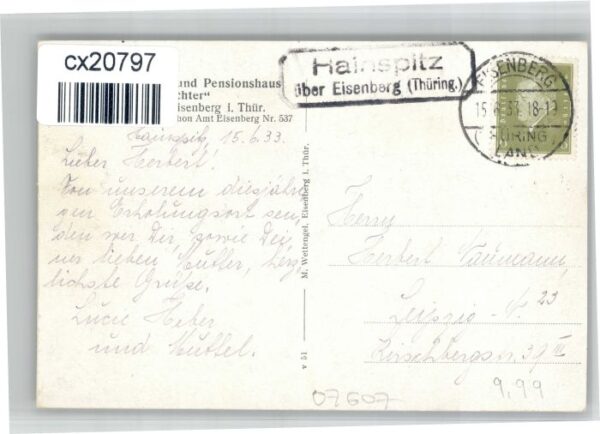 cx20797
und Pensionshaus
chter"
isenberg i. Thür.
hon Amt Eisenberg Nr. 537
Hainspitz
über Eisenberg (Thüring.)
EISENBERG
15. 6. 33. 18-19
(THÜRING.
LAND)
Hainspitz, 15.6.33.
Lieber Herbert!
Von unserem diesjähri
gen Erholungsort sen,
den wir Dir, sowie Dei,
ner lieben Mutter, herz,
lichste Grüße.
Lucie Heber
und Muttel.
M. Wettengel, Eisenberg i. Thür.
v 51
Herrn
Herbert Naumann,
Leipzig - N. 23
Kirschbergstr. 39 III
07607
9,99